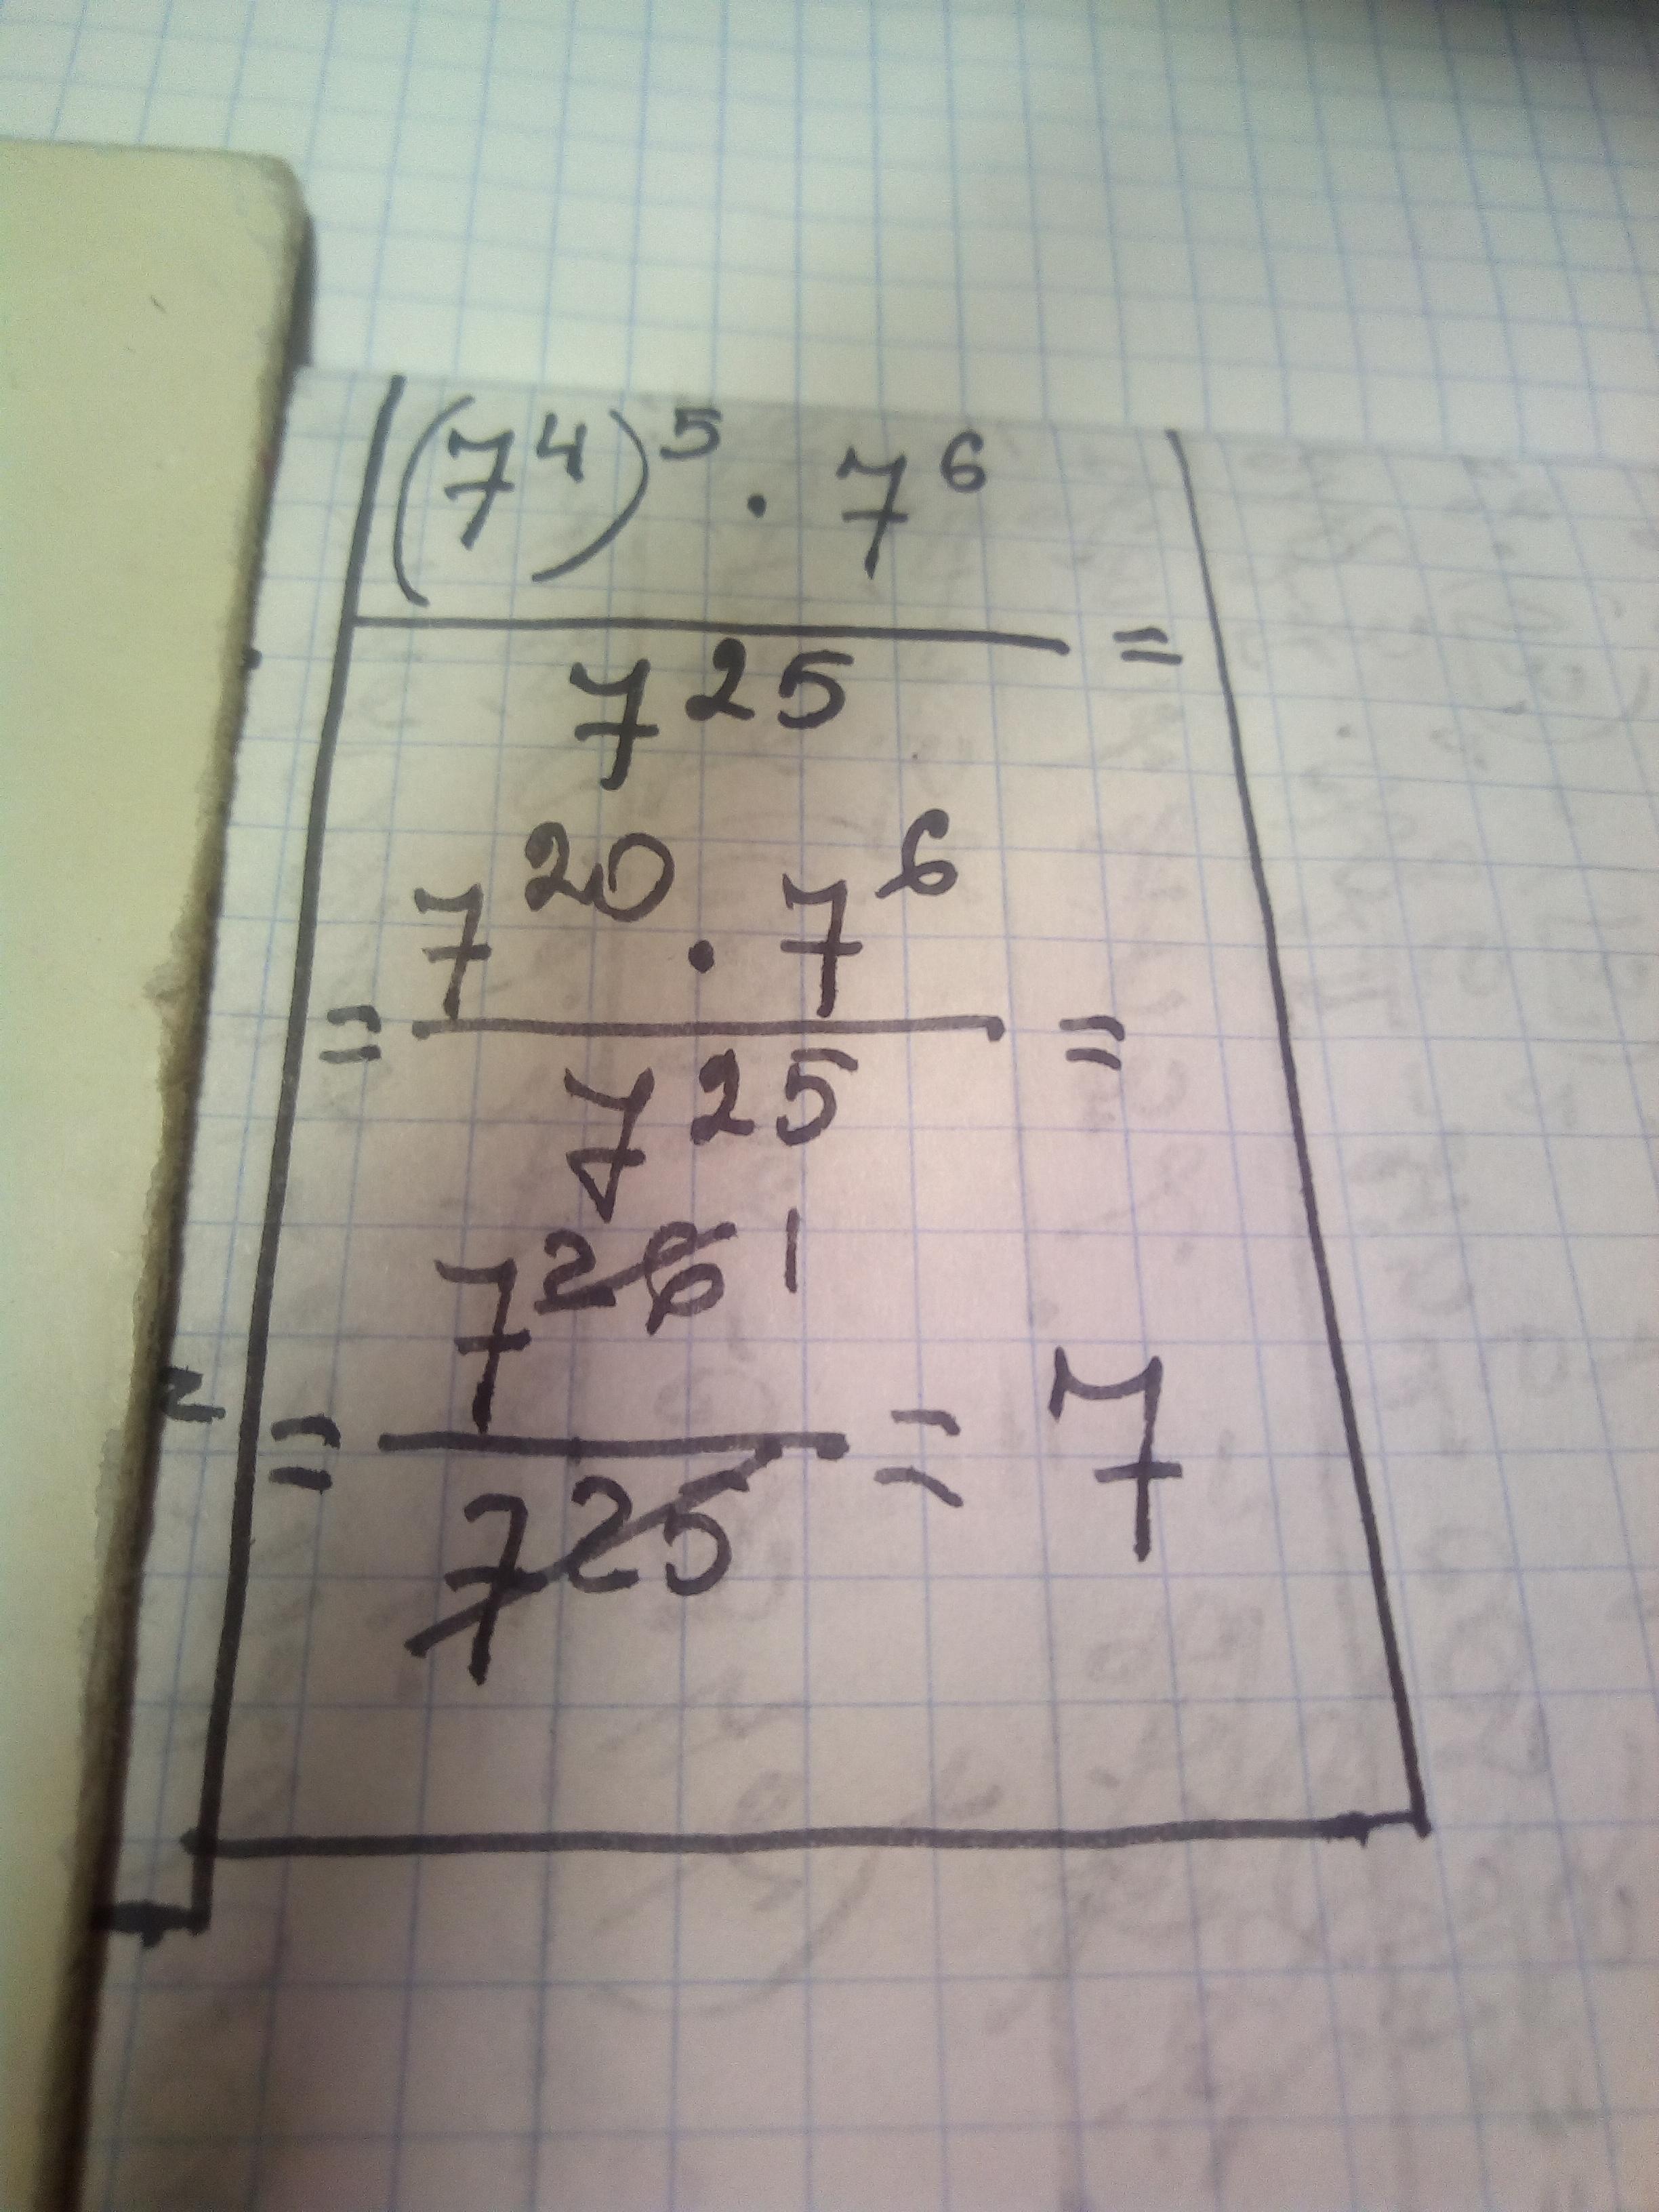 (7⁴)⁵ · 7⁶
7²⁵ =
= 7²⁰ · 7⁶ =
7²⁵
7²⁶ 1
= 7²⁵ = 7